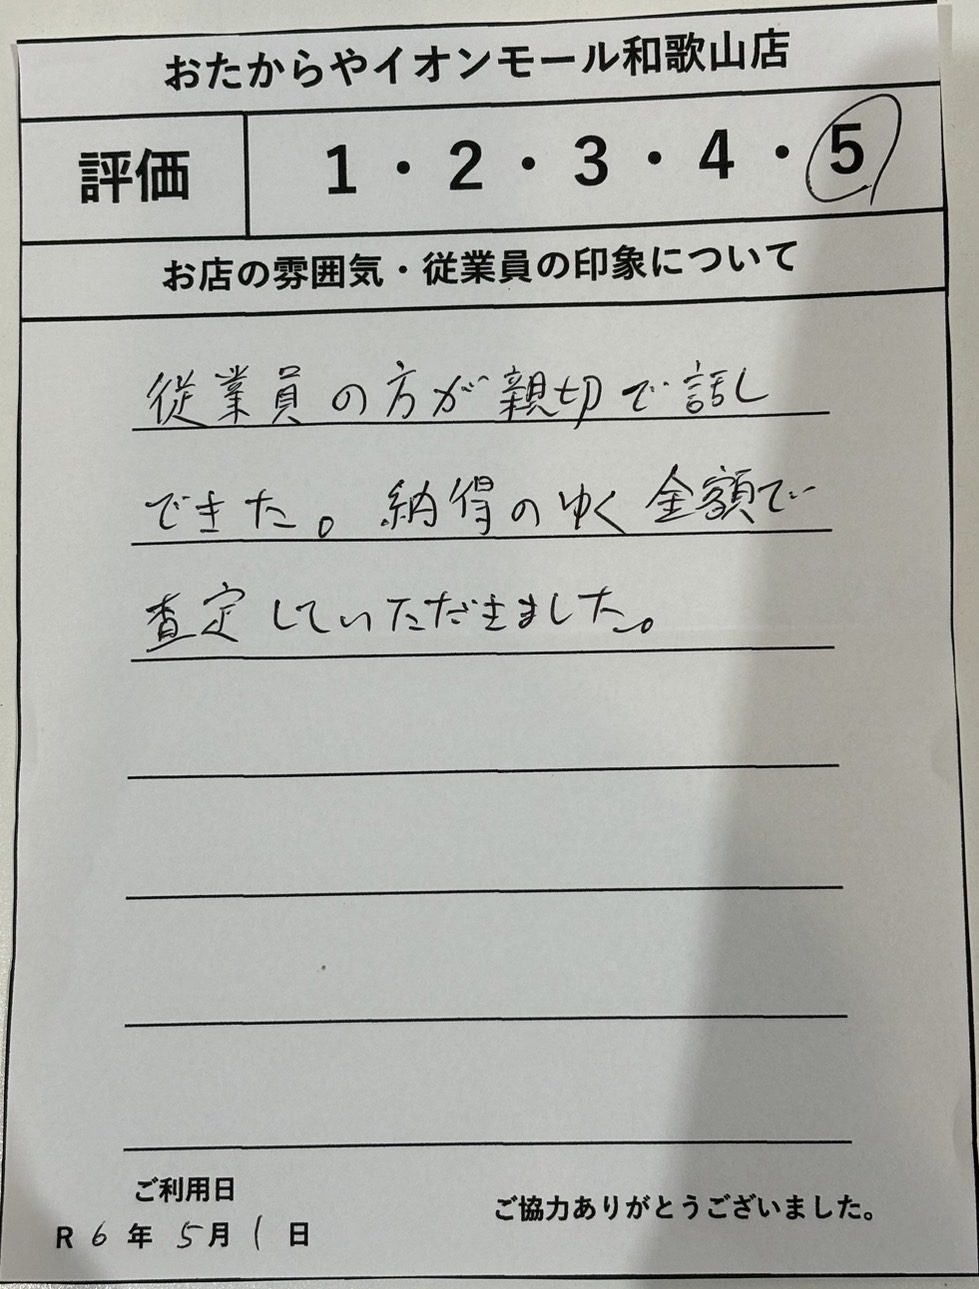 おたからやイオンモール和歌山店
評価
1・2・3・4・5
お店の雰囲気・従業員の印象について
従業員の方が親切で話し
できた。納得のゆく金額で
査定していただきました。
ご利用日
R6年5月1日
ご協力ありがとうございました。